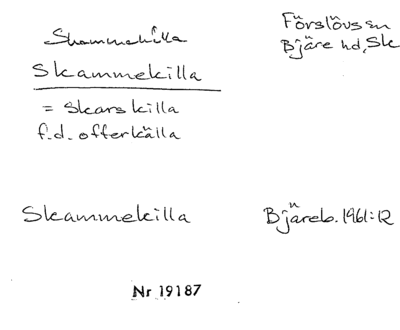 Skammekilla
Förslövs sn
Bjäre hd, Sk
Skammekilla
= Skarskilla
f.d. offerkälla
Skammekilla
Bjäreb. 1961:12
Nr 19187